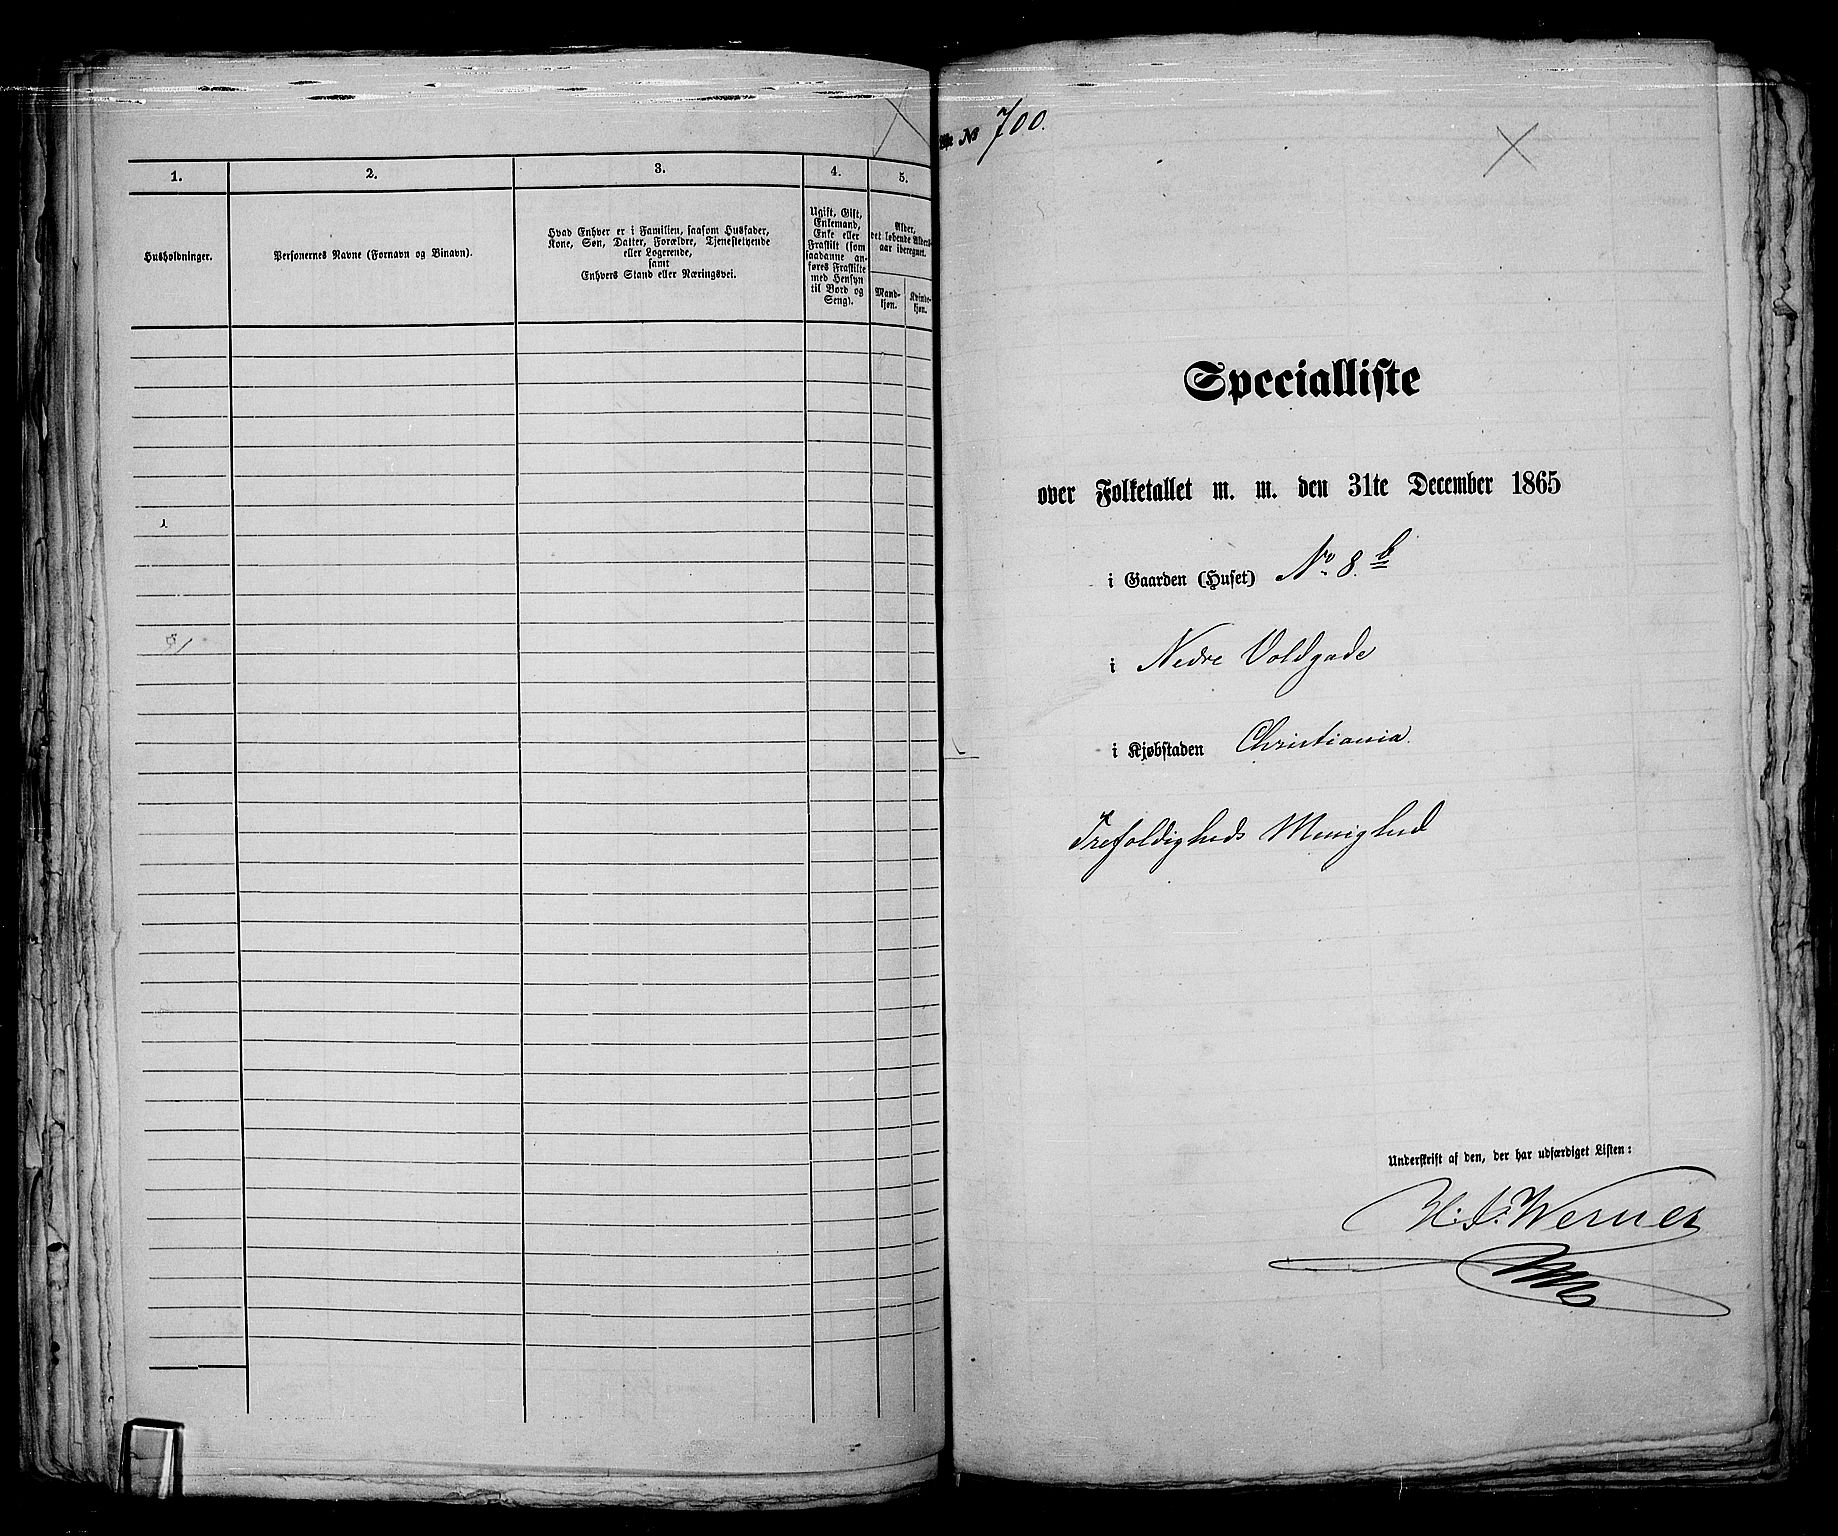 1.
2.
3.
4.
5.
Husholdninger.
Personernes Navne (Fornavn og Binavn).
Hvad Enhver er i Familien, saasom Husfader,
Kone, Søn, Datter, Forældre, Tjenestetyende
eller Logerende,
samt
Enhvers Stand eller Næringsvei.
Ugift, Gift,
Enkemand,
Enke eller
Fraskilt (som
saadanne an-
føres Fraskilte
med Hensyn
til Bord og
Seng).
Alder,
det løbende Alders-
aar iberegnet.
Mand-
kjøn.
Kvinde-
kjøn.
№ 700.
Specialliste
over Folketallet m. m. den 31te December 1865
i Gaarden (Huset) No. 8. b
i Nedre Voldgade
i Kjøbstaden Christiania.
Trefoldigheds Menighed
Underskrift af den, der har udfærdiget Listen:
H. J. Werner